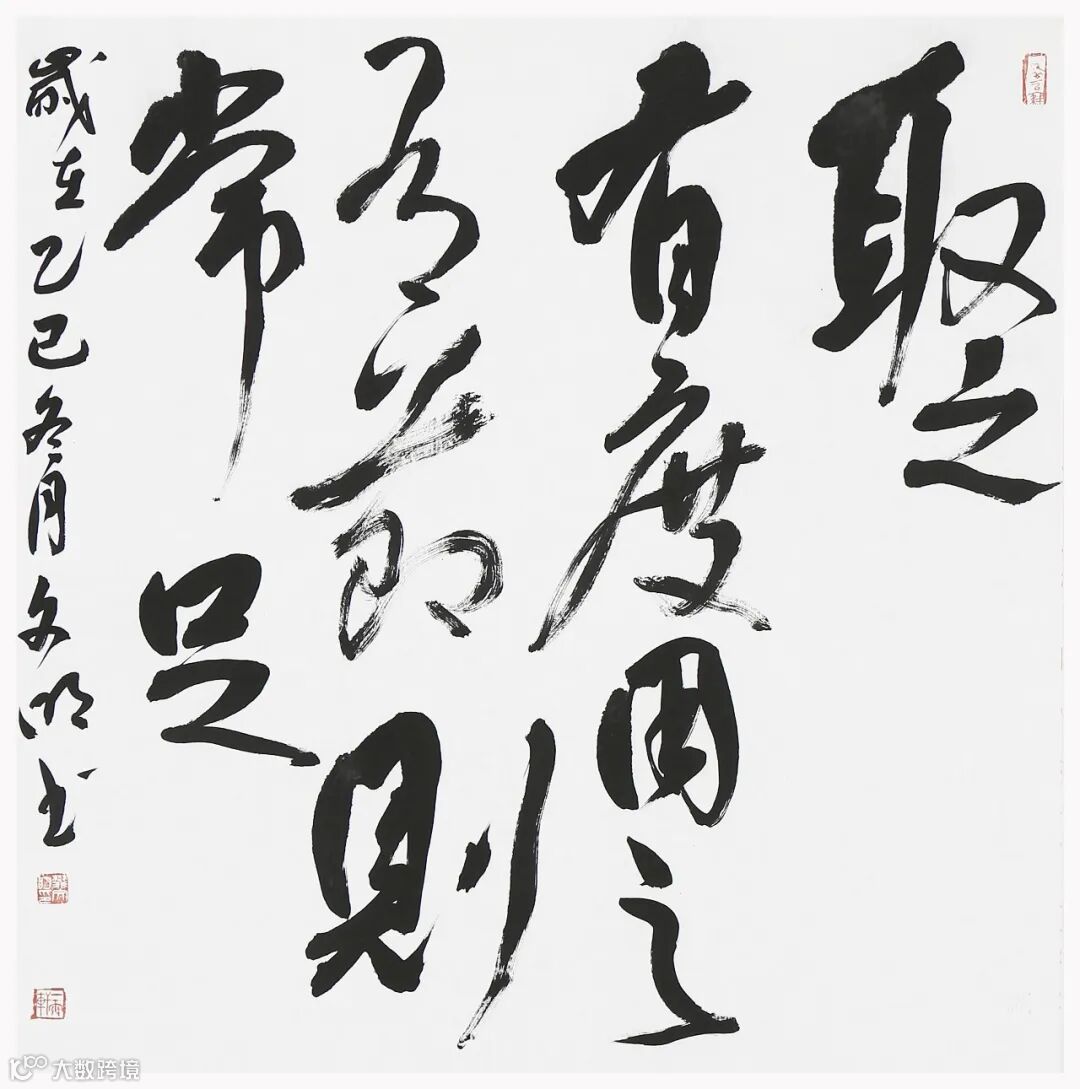 取之
有度用之
有節則
常足
歲在乙巳冬月文明书
大数跨境